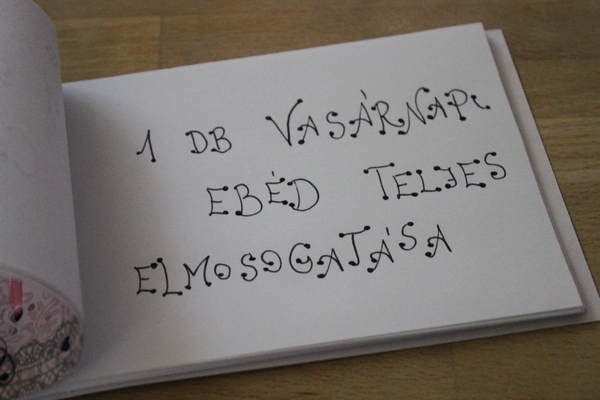 1 DB VASÁRNAPI
EBÉD TELJES
ELMOSOGATÁSA